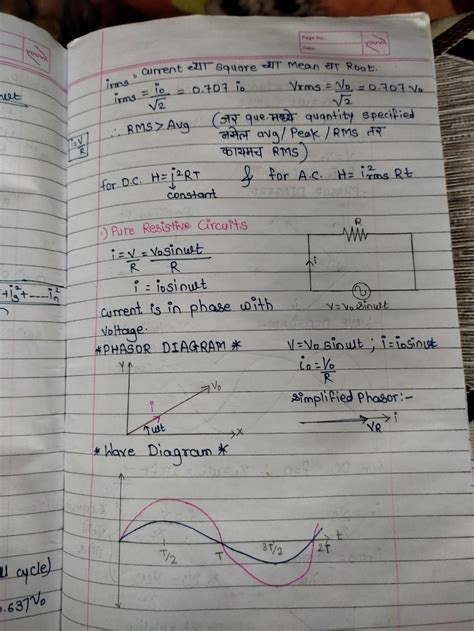 Page No.:
Date:
YOUVA
irms = Current च्या Square च्या Mean चा Root.
irms = i₀/√2 = 0.707 i₀
Vrms = V₀/√2 = 0.707 V₀
∴ RMS > Avg
(जर que. मध्ये quantity specified
नसेल avg/Peak/RMS तर
कायमच RMS)
for D.C. H = i²RT & for A.C. H = i²rms Rt
constant
1) Pure Resistive Circuits
i = V/R = V₀sinωt/R
i = i₀sinωt
Current is in phase with
voltage.
R
i
V = V₀ sinωt
*PHASOR DIAGRAM*
V = V₀ sinωt ; i = i₀sinωt
i₀ = V₀/R
Simplified Phasor:-
i
VR
Y
V₀
i
ωt
X
* Wave Diagram *
T/2
T
3T/2
2T
t
i=V/R
+i₃²+----iₙ²
cycle)
0.637V₀